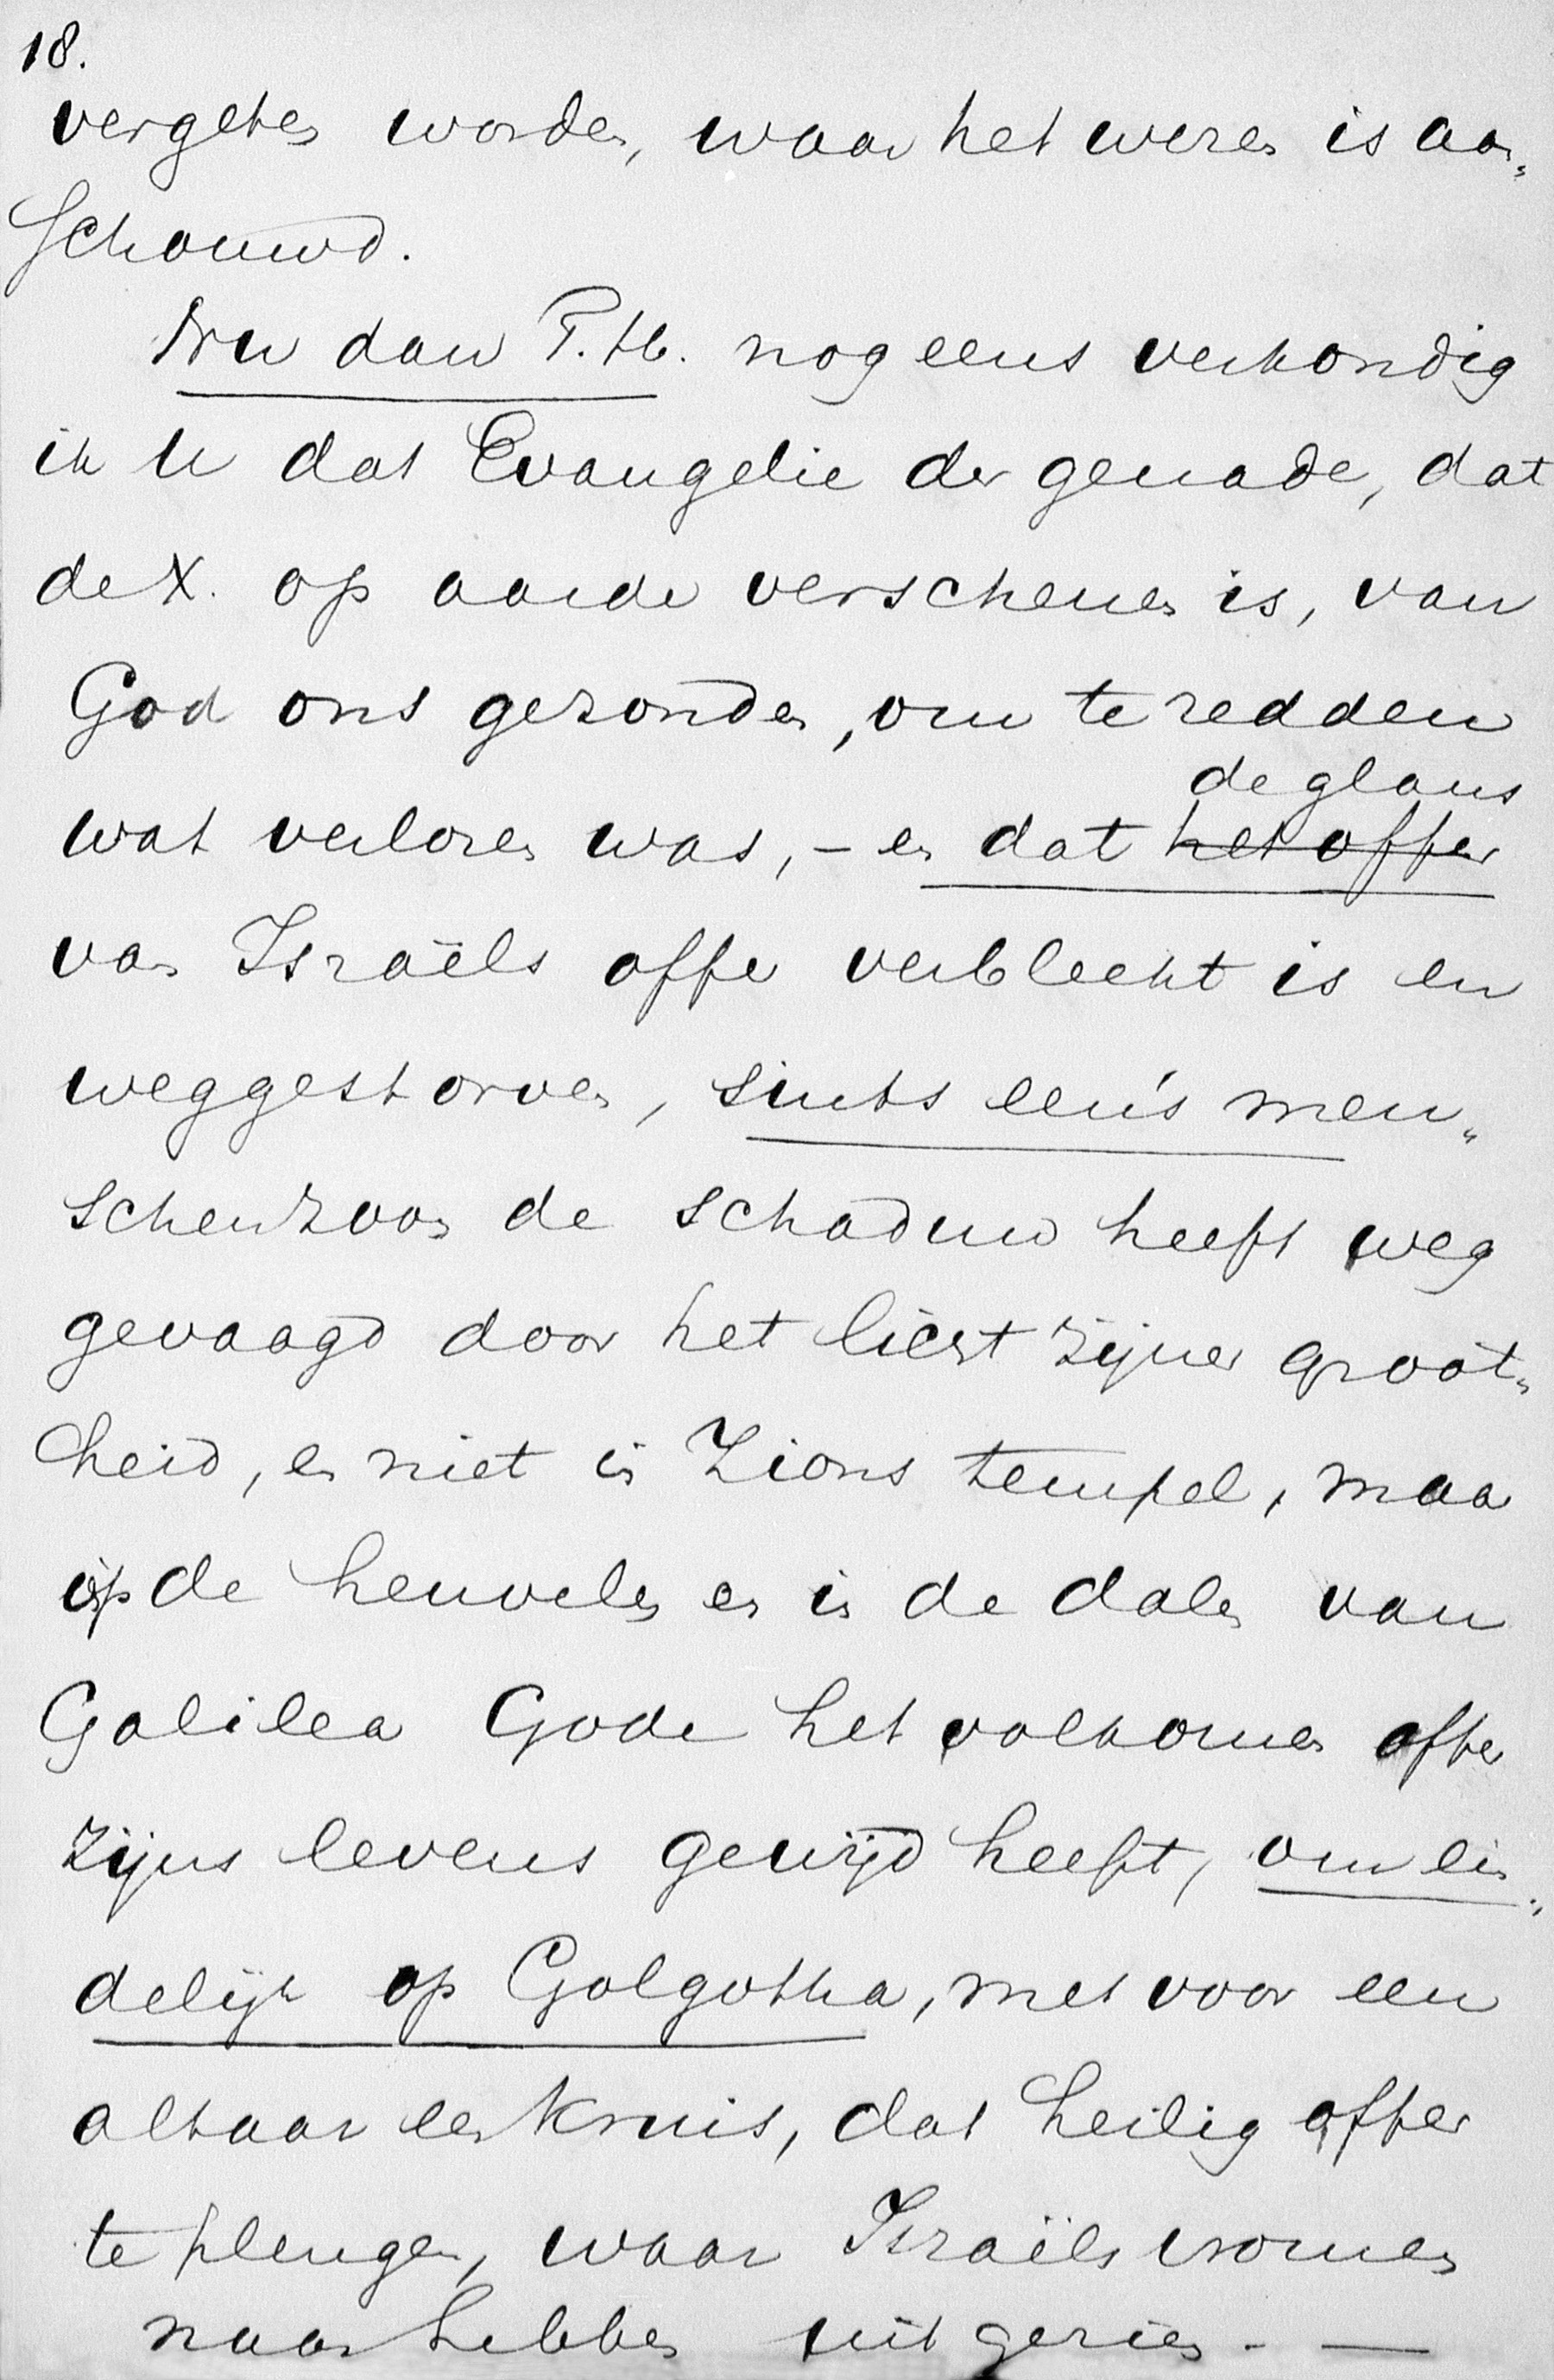 18.
vergeten worden, waar het wezen is aan„
schouwd.
Nu dan T. H. nog eens verkondig
ik U dat Evangelie der genade, dat
de X. op aarde verschenen is, van
God ons gezonden, om te redden
de glans
wat verloren was, – en dat het offer
van Israëls offer verbleekt is en
weggestorven, sints een's men„
schenzoon de schaduw heeft weg
gevaagd door het licht zijner groot„
heid, en niet in Zions tempel, maar
op de heuvelen en in de dalen van
Galilea Gode het volkomen offer
zijns levens gewijd heeft, om ein„
delijk op Golgotha, met voor een
altaar een kruis, dat heilig offer
te plengen, waar Israëls vromen
naar hebben uitgezien. —